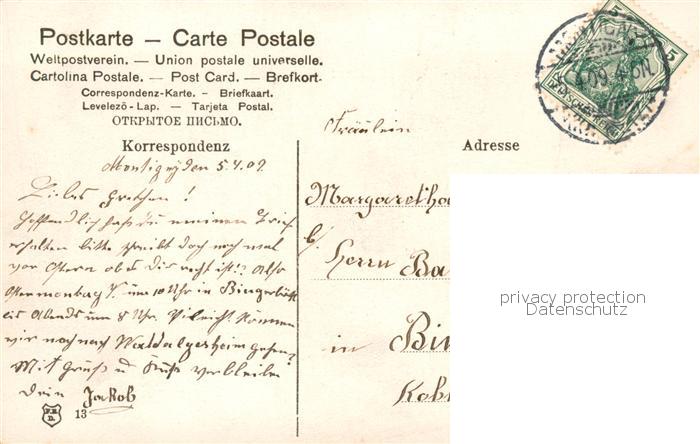 Postkarte — Carte Postale
Weltpostverein. — Union postale universelle.
Cartolina Postale. — Post Card. — Brefkort.
Correspondenz-Karte. - Briefkaart.
Levelező - Lap. — Tarjeta Postal.
ОТКРЫТОЕ ПИСЬМО.
Korrespondenz
Adresse
Fräulein
Montigny den 5.4.09.
Liebes Gretchen!
Hoffendlich hast du meinen Brief
erhalten bitte schreibt doch noch mal
vor Ostern ob es Dir recht ist!? Also
Ostermontag um 10 Uhr in Bingerbrück
bis Abends um 8 Uhr. Vileicht können
wir noch nach Waldalgesheim gehen?
Mit Gruß u Kuß verbleibe
Dein Jakob
Margaretha
b/ Herrn Ba
in Bin
Kob
5
5
4.09. 4-5N.
13
privacy protection
Datenschutz